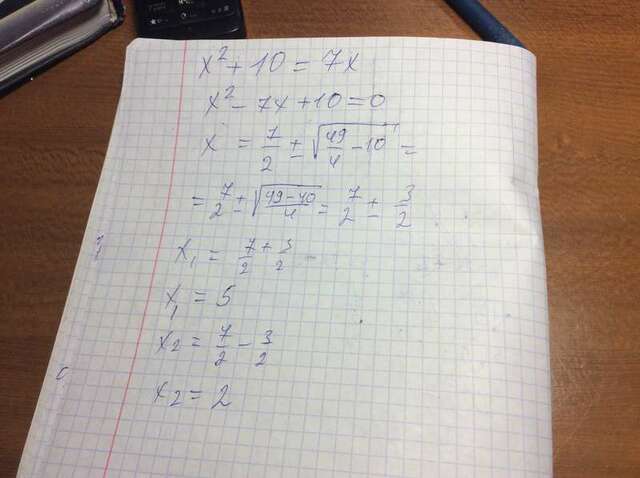 x² + 10 = 7x
x² - 7x + 10 = 0
x = 7/2 ± √(49/4 - 10) =
= 7/2 ± √((49-40)/4) = 7/2 ± 3/2
x₁ = 7/2 + 3/2
x₁ = 5
x₂ = 7/2 - 3/2
x₂ = 2